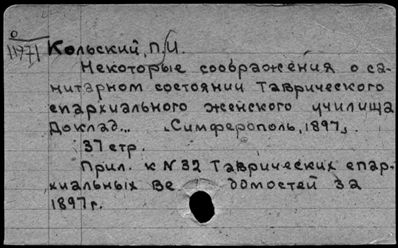 О
11971
Кольский, П.И.
Некоторые соображения о са-
нитарном состоянии Таврического
епархиального женского училища
Доклад... Симферополь, 1897.
37 стр.
Прил. к N 32 Таврических епар-
хиальных Ве домостей за
1897 г.